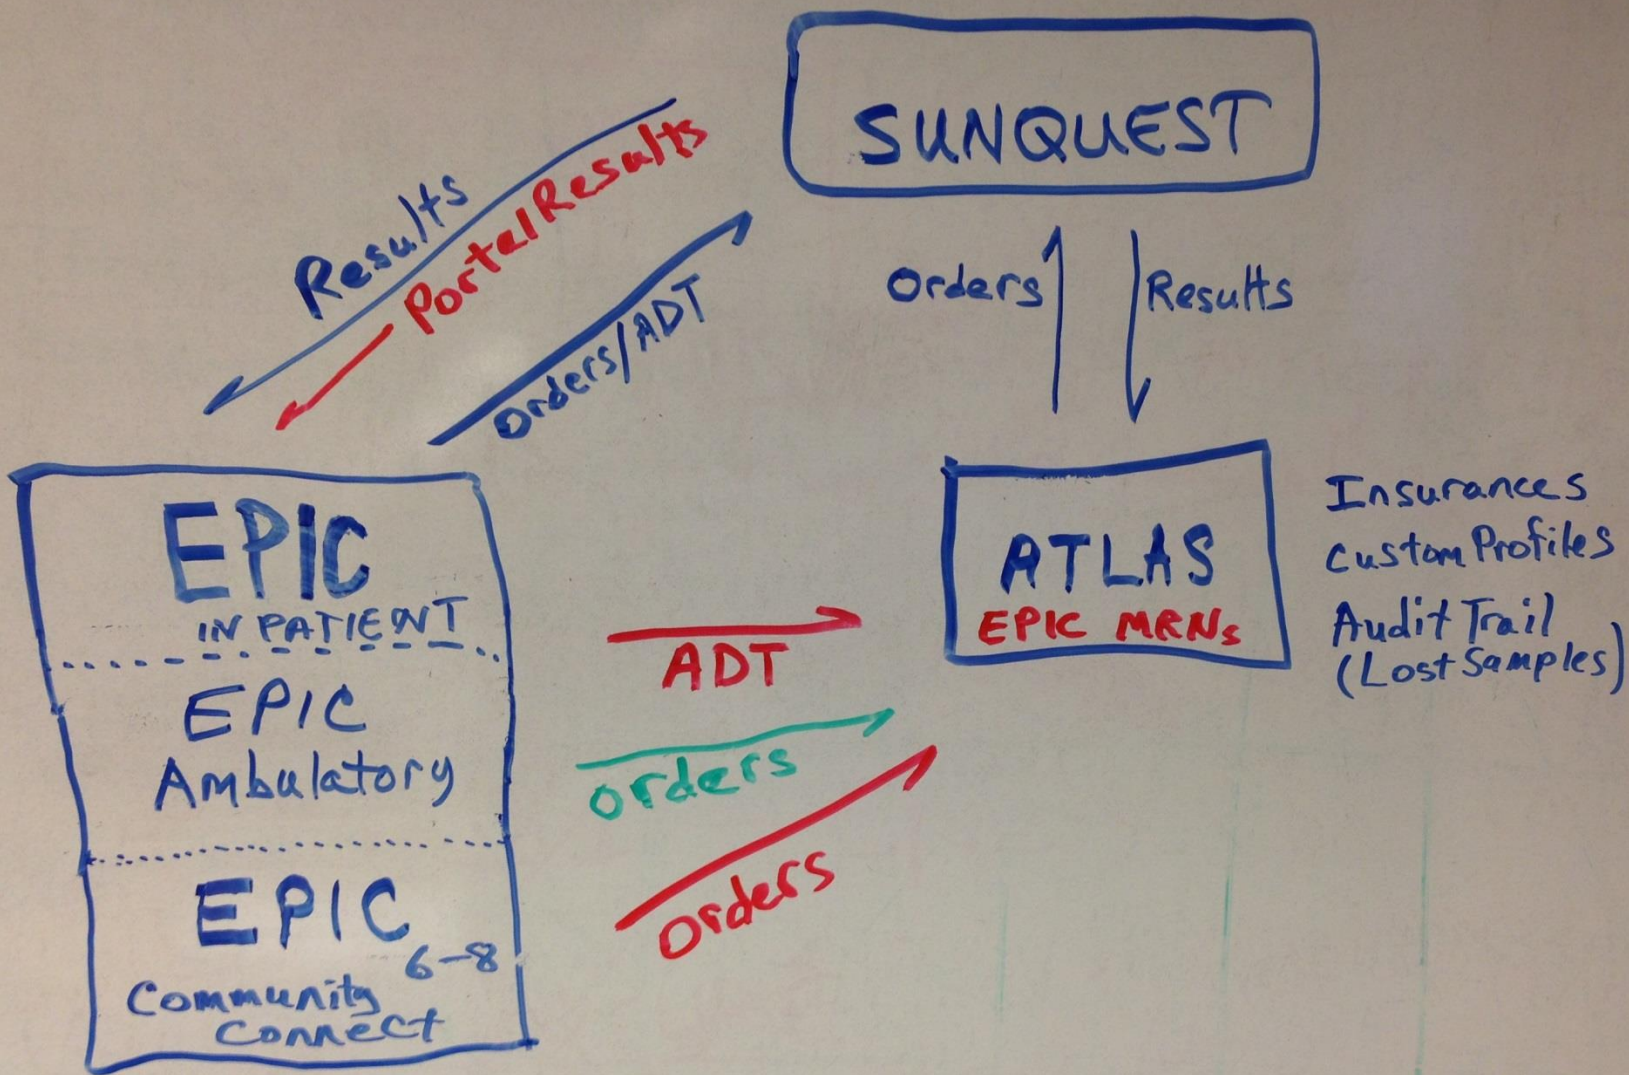 SUNQUEST
Results
Portal Results
Orders/ADT
Orders
Results
EPIC
INPATIENT
EPIC
Ambulatory
EPIC
6-8
Community
Connect
ADT
Orders
Orders
ATLAS
EPIC MRNs
Insurances
Custom Profiles
Audit Trail
(Lost Samples)